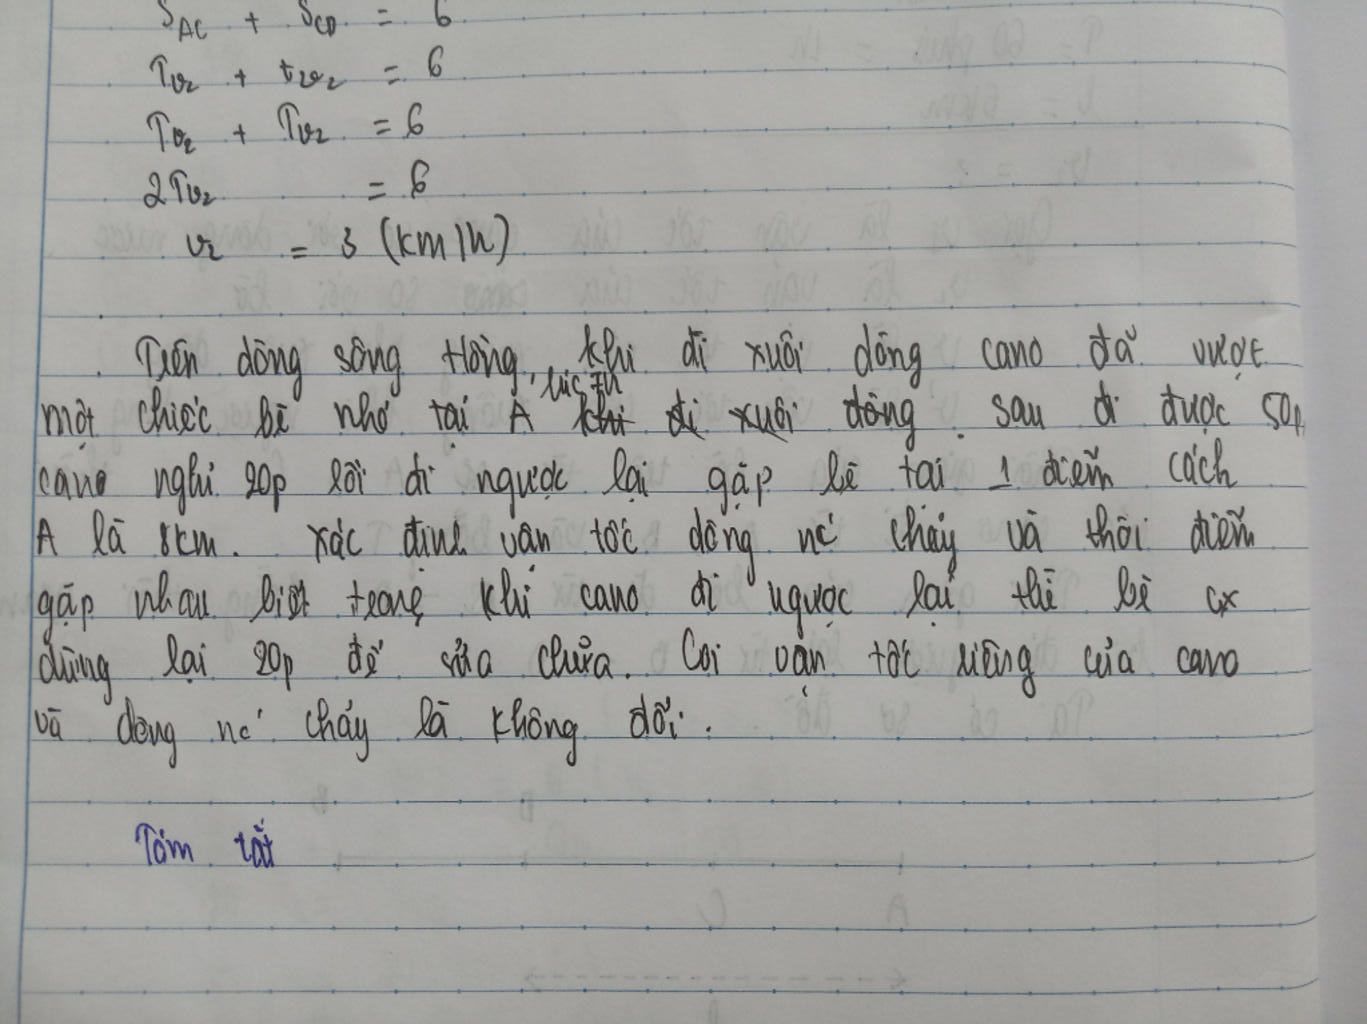 S_AC + S_CD = 6
Tv₂ + tv₂ = 6
Tv₂ + Tv₂ = 6
2Tv₂ = 6
v₂ = 3 (km/h)
. Trên dòng sông Hồng, khi đi xuôi dòng cano đã vượt
lúc 7h
một chiếc bè nhỏ tại A khi đi xuôi dòng. sau đi được 50p
cano nghỉ 20p rồi đi ngược lại gặp bè tại 1 điểm cách
A là 8km. xác định vận tốc dòng nc' chảy và thời điểm
gặp nhau biết trong khi cano đi ngược lại thì bè cx
dừng lại 20p để sửa chữa. Coi vận tốc riêng của cano
và dòng nc' chảy là không đổi.
Tóm tắt